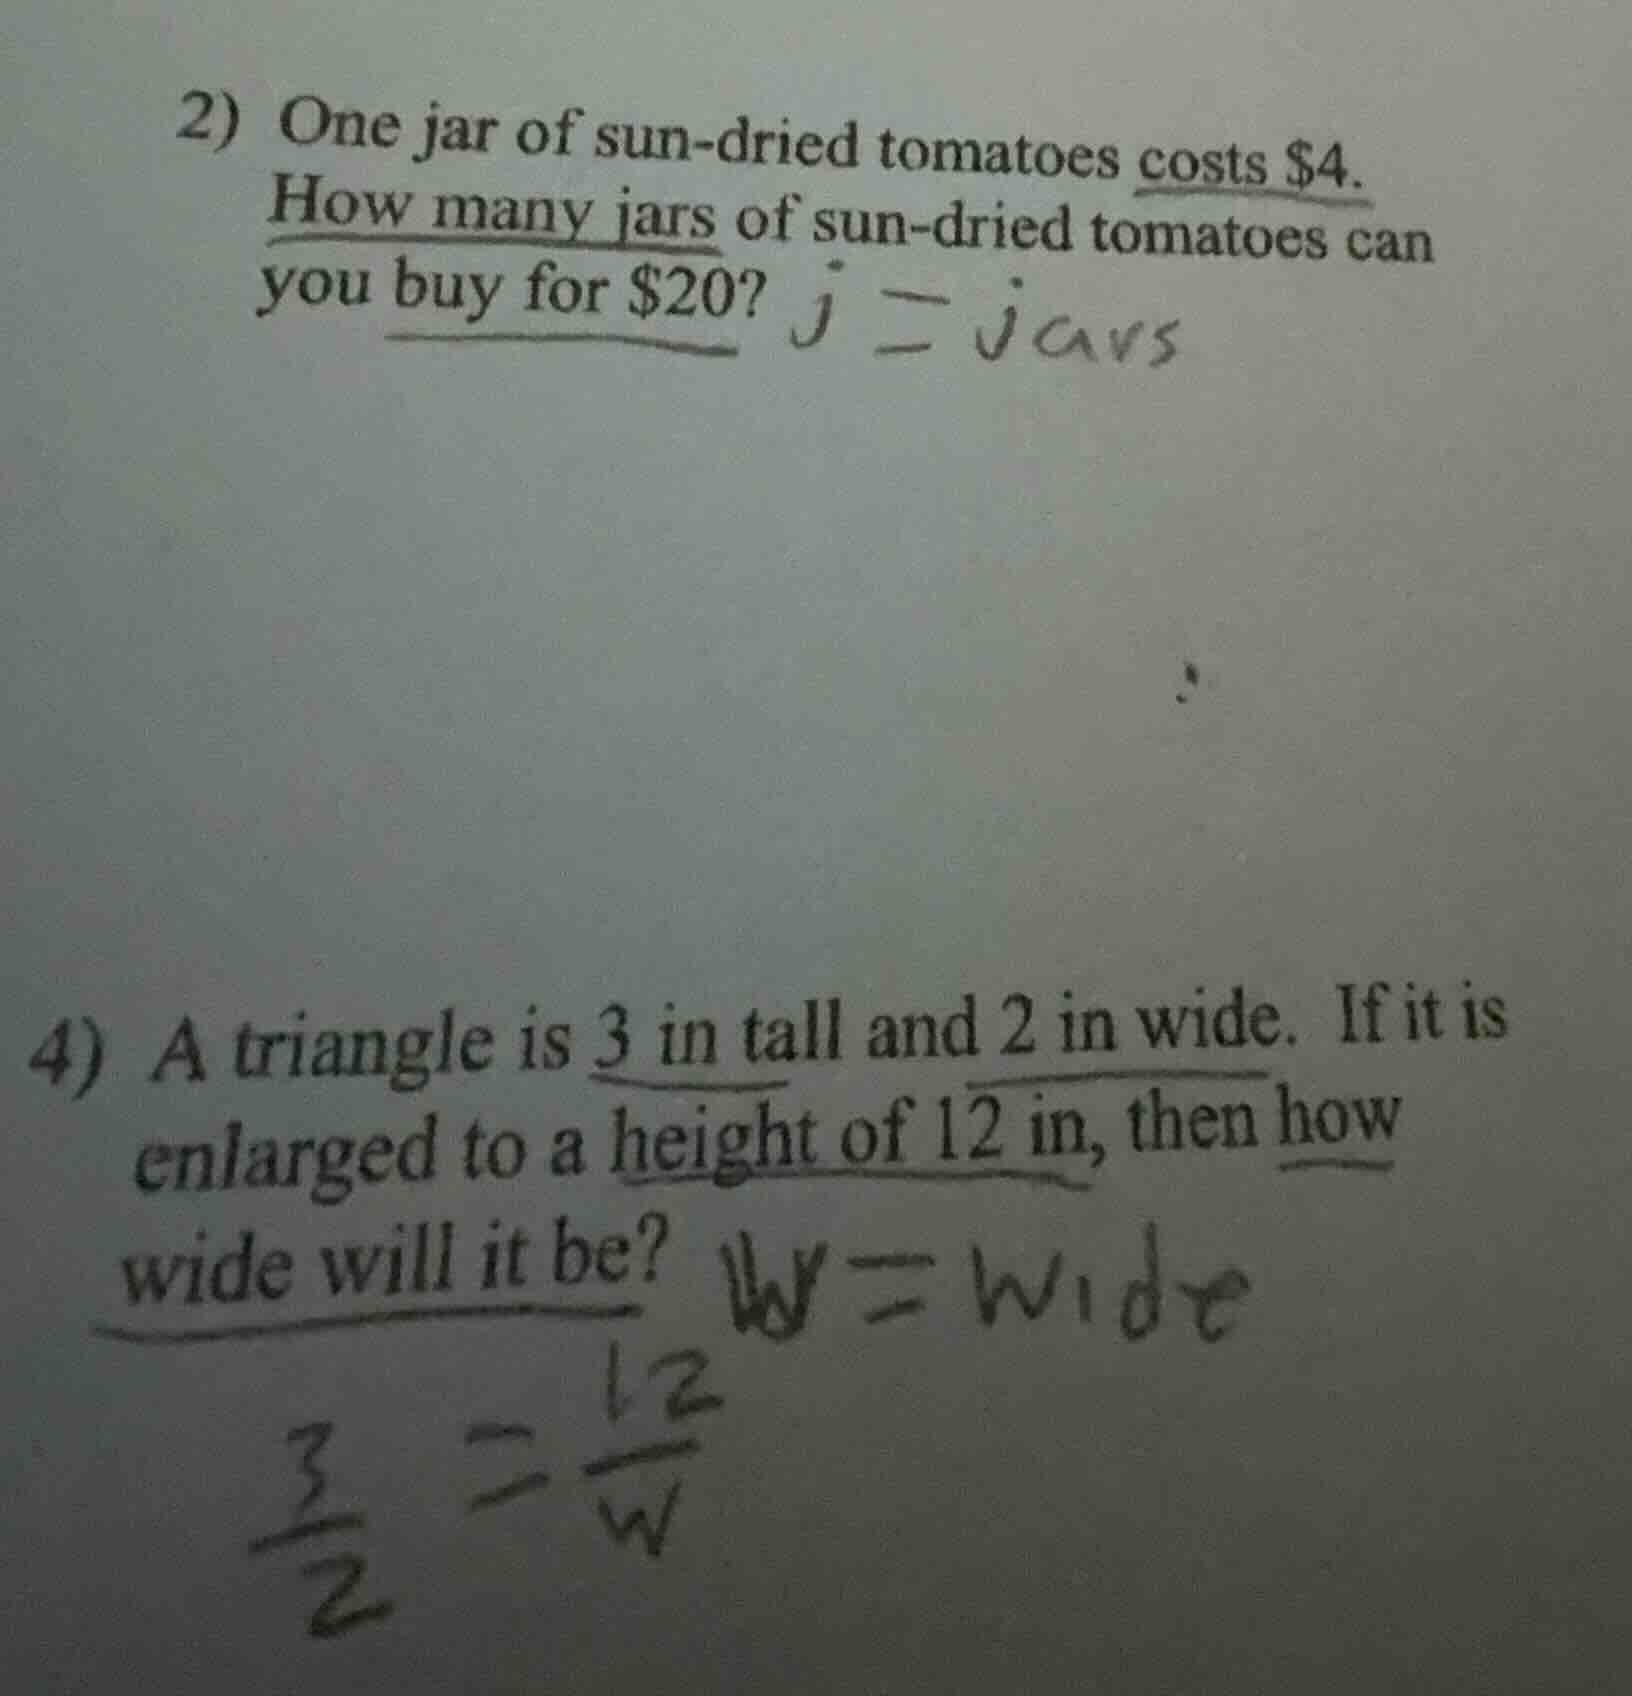 2) One jar of sun-dried tomatoes costs $4.
How many jars of sun-dried tomatoes can
you buy for $20? j = jars
4) A triangle is 3 in tall and 2 in wide. If it is
enlarged to a height of 12 in, then how
wide will it be? W = wide
3/2 = 12/w